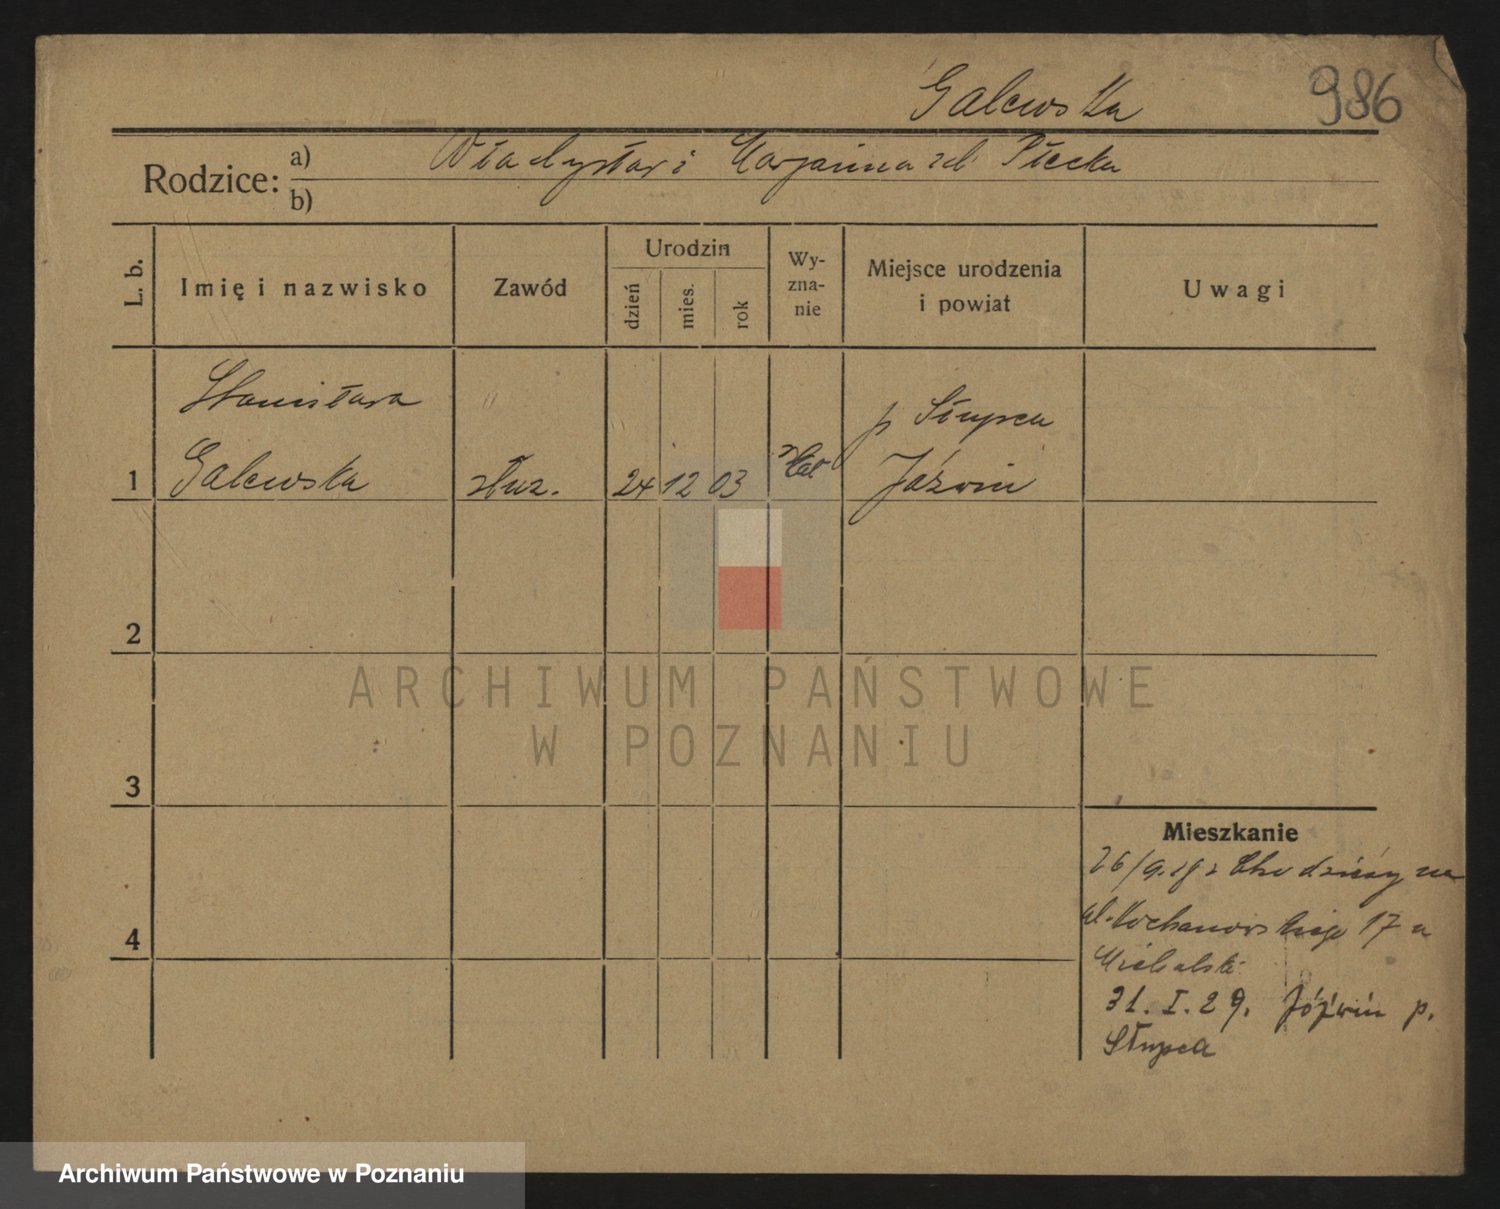 Galewska 986
Rodzice: a) Władysław i Marjanna zd. Płecka
b)
L. b. Imię i nazwisko Zawód Urodzin dzień mies. rok Wyznanie Miejsce urodzenia i powiat Uwagi
Stanisława p Słupca
1 Galewska służ. 24 12 03 kat Jóźwin
2
3
4
Mieszkanie
26/9.28 z Chodzieży na
ul. Kochanowskiego 17 u
Michalski
31. I. 29. Jóźwin p.
Słupca
ARCHIWUM PAŃSTWOWE
W POZNANIU
Archiwum Państwowe w Poznaniu